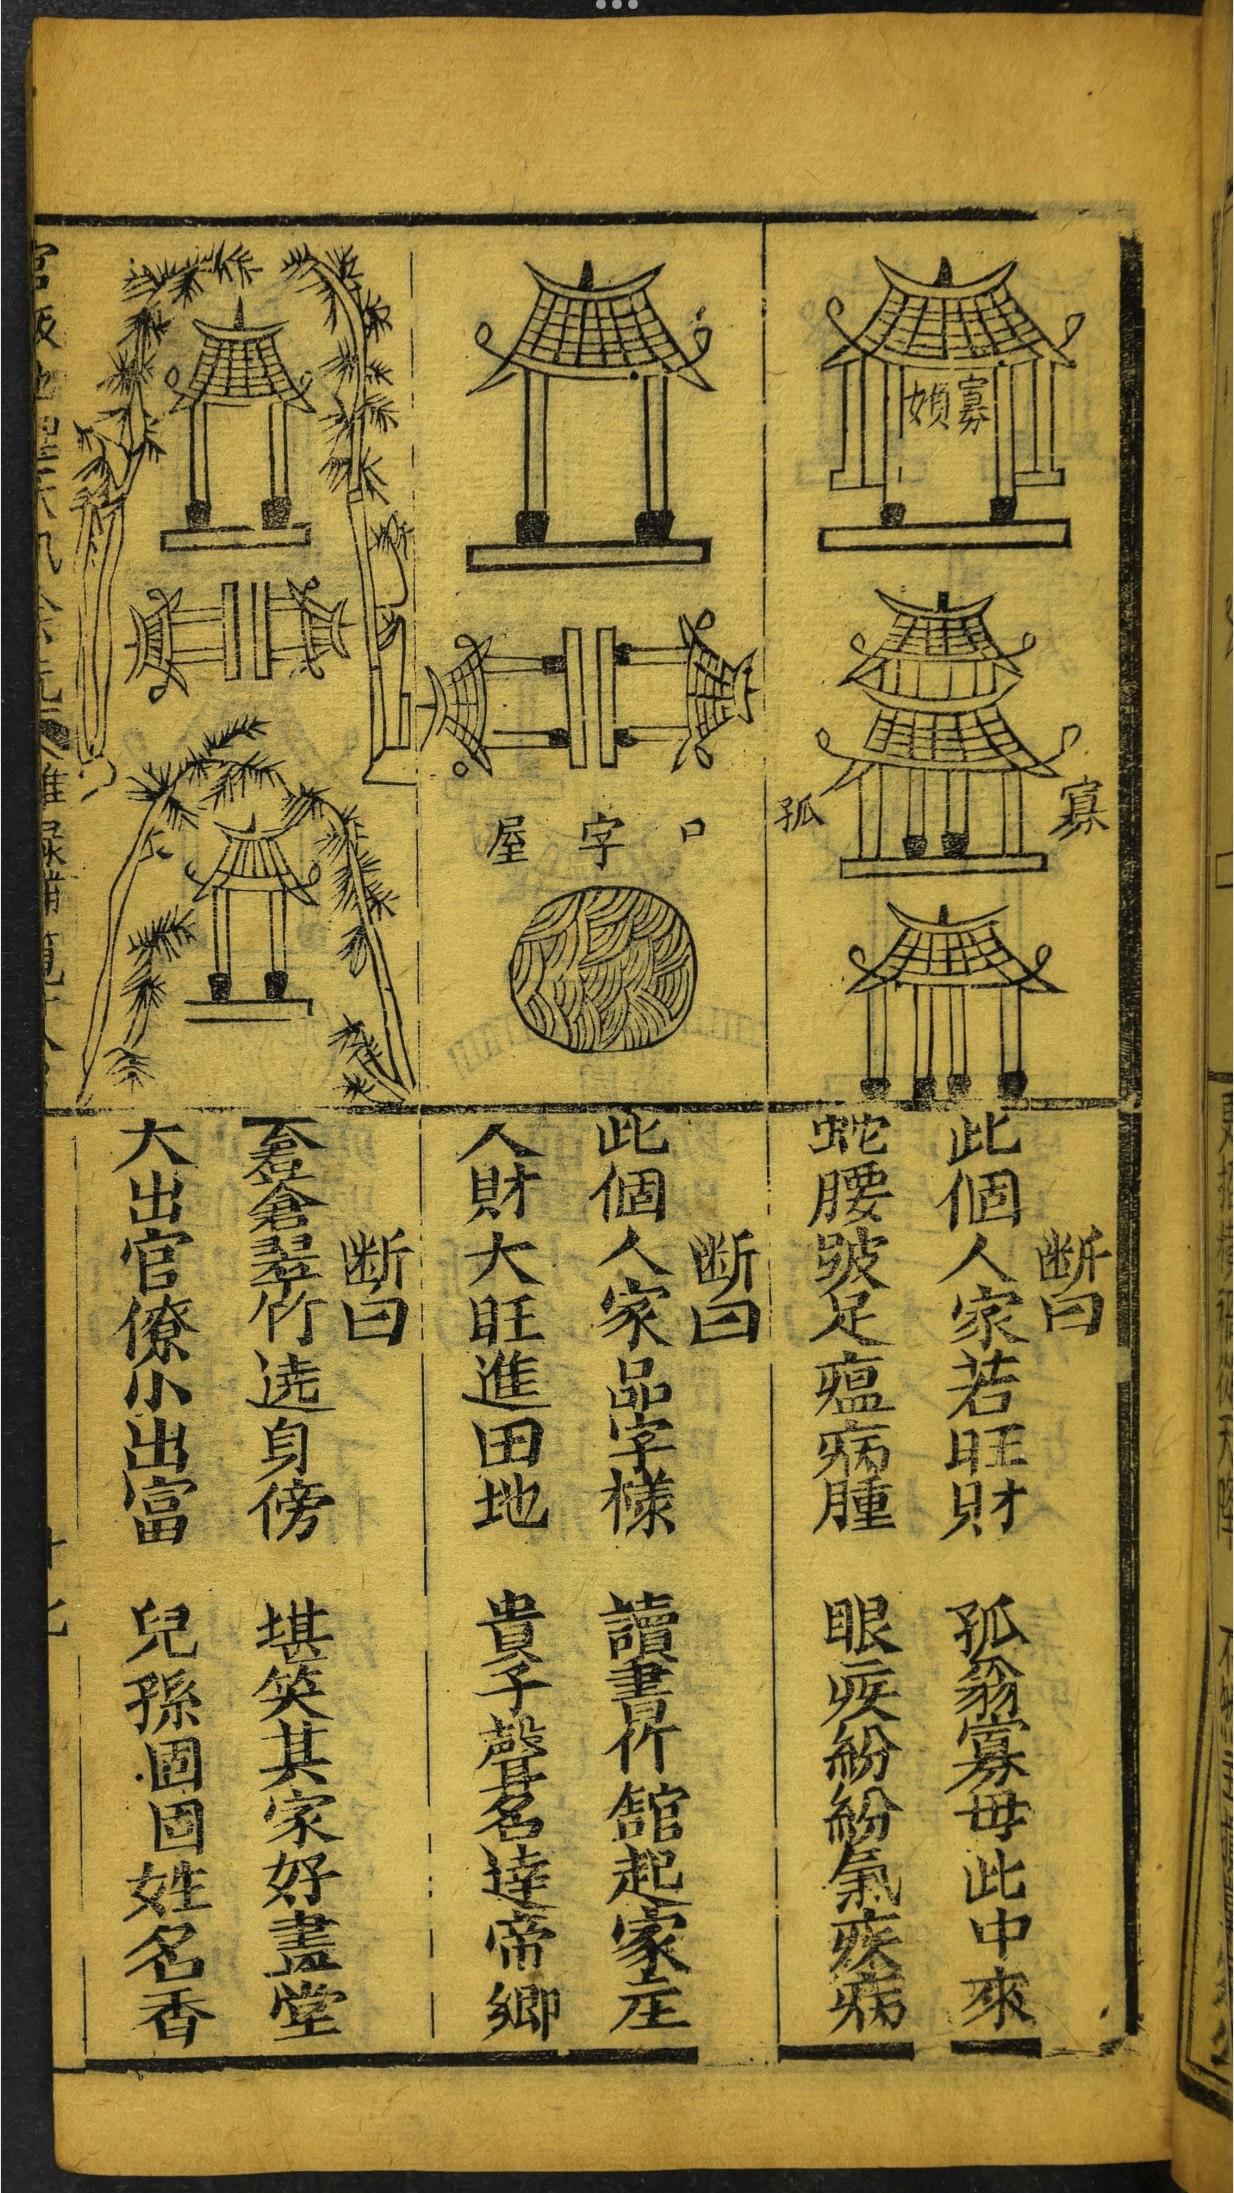 寡
媍
孤
寡
斷曰
此個人家若旺財 孤翁寡毋此中來
蛇腰跛足瘟病腫 眼疾紛紛氣疾病
口字屋
斷曰
此個人家品字樣 讀書作舘起家庄
人財大旺進田地 貴子聲名達帝鄉
斷曰
蒼翠竹遶身傍 堪笑其家好畫堂
大出官僚小出富 兒孫固固姓名香